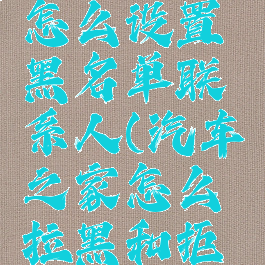 怎么设置
黑名单联
系人(汽车
之家怎么
拉黑和拒